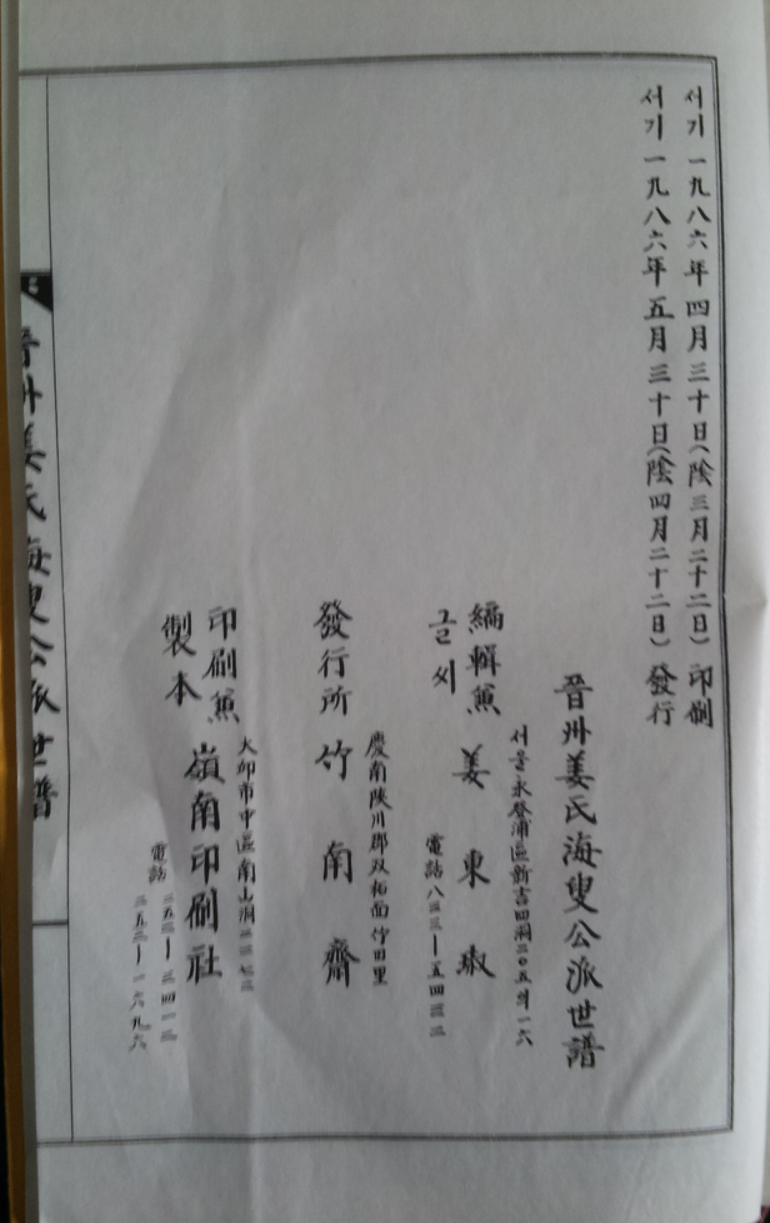 서기 一九八六年 四月 三十日(陰 三月二十二日) 印刷
서기 一九八六年 五月 三十日(陰 四月二十二日) 發行
晉州姜氏海叟公派世譜
서울永登浦區新吉四洞二○五의一六
編輯兼 姜東
글씨
電話 八三三ー五四三三
慶南陜川郡双栢面竹田里
發行所 竹南齋
大邱市中區南山洞
印刷兼 嶺南印刷社
製本
電話
晉州姜氏海叟公派世譜